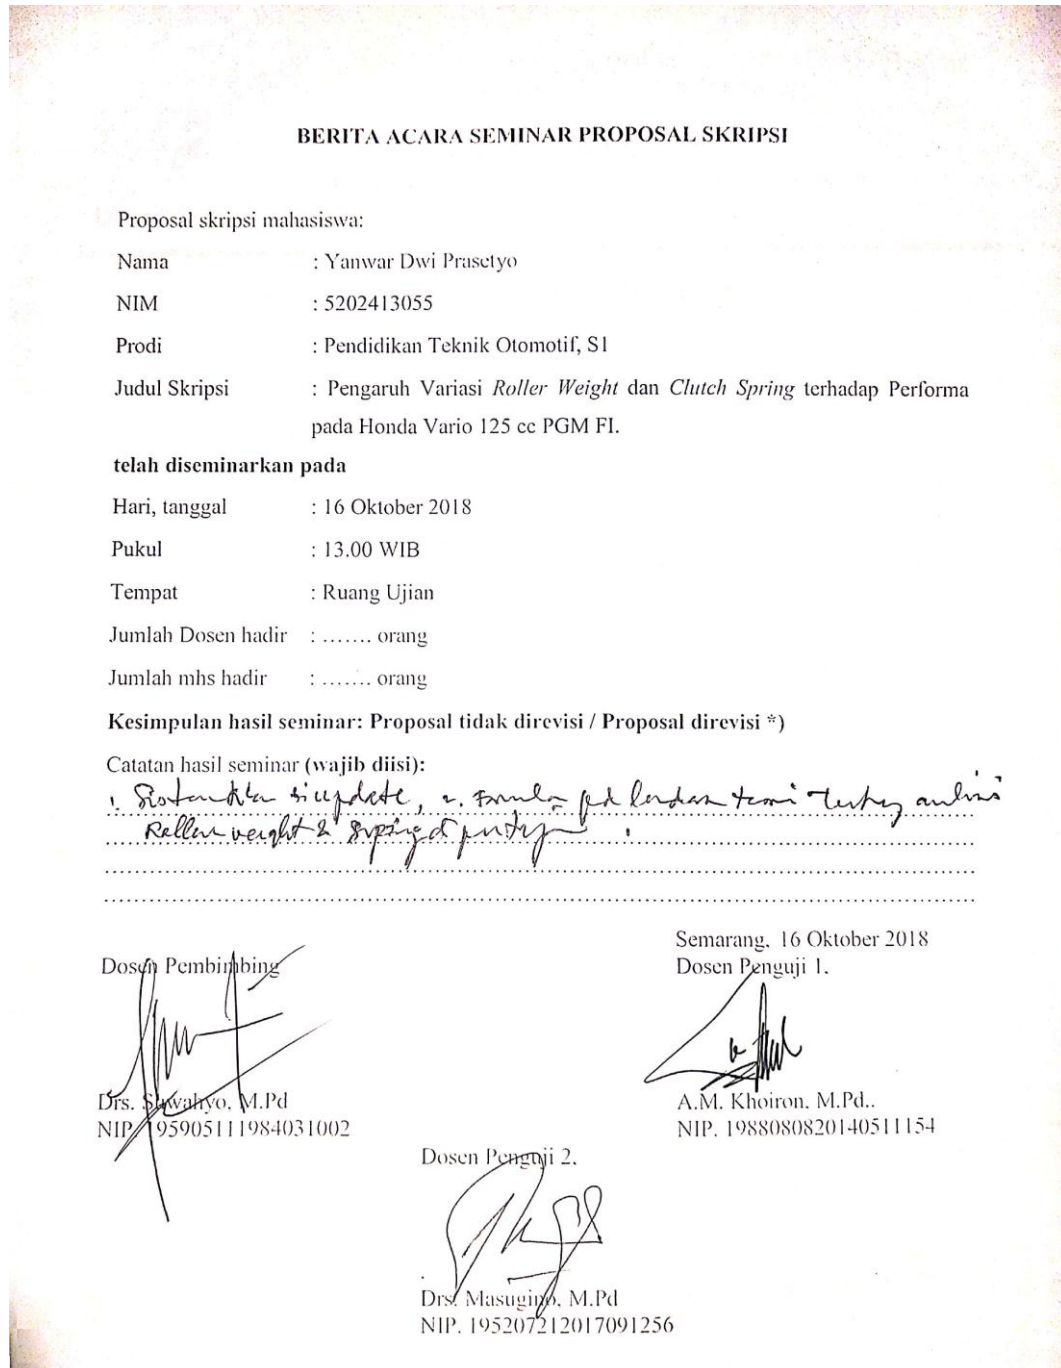 BERITA ACARA SEMINAR PROPOSAL SKRIPSI
Proposal skripsi mahasiswa:
Nama : Yanwar Dwi Prasetyo
NIM : 5202413055
Prodi : Pendidikan Teknik Otomotif, S1
Judul Skripsi : Pengaruh Variasi Roller Weight dan Clutch Spring terhadap Performa
pada Honda Vario 125 cc PGM FI.
telah diseminarkan pada
Hari, tanggal : 16 Oktober 2018
Pukul : 13.00 WIB
Tempat : Ruang Ujian
Jumlah Dosen hadir : ....... orang
Jumlah mhs hadir : ....... orang
Kesimpulan hasil seminar: Proposal tidak direvisi / Proposal direvisi *)
Catatan hasil seminar (wajib diisi):
1. update, 2.
weight &
Semarang, 16 Oktober 2018
Dosen Pembimbing Dosen Penguji 1,
Drs. Suwahyo, M.Pd A.M. Khoiron, M.Pd..
NIP. 195905111984031002 NIP. 1988080820140511154
Dosen Penguji 2,
Drs. Masugino, M.Pd
NIP. 195207212017091256